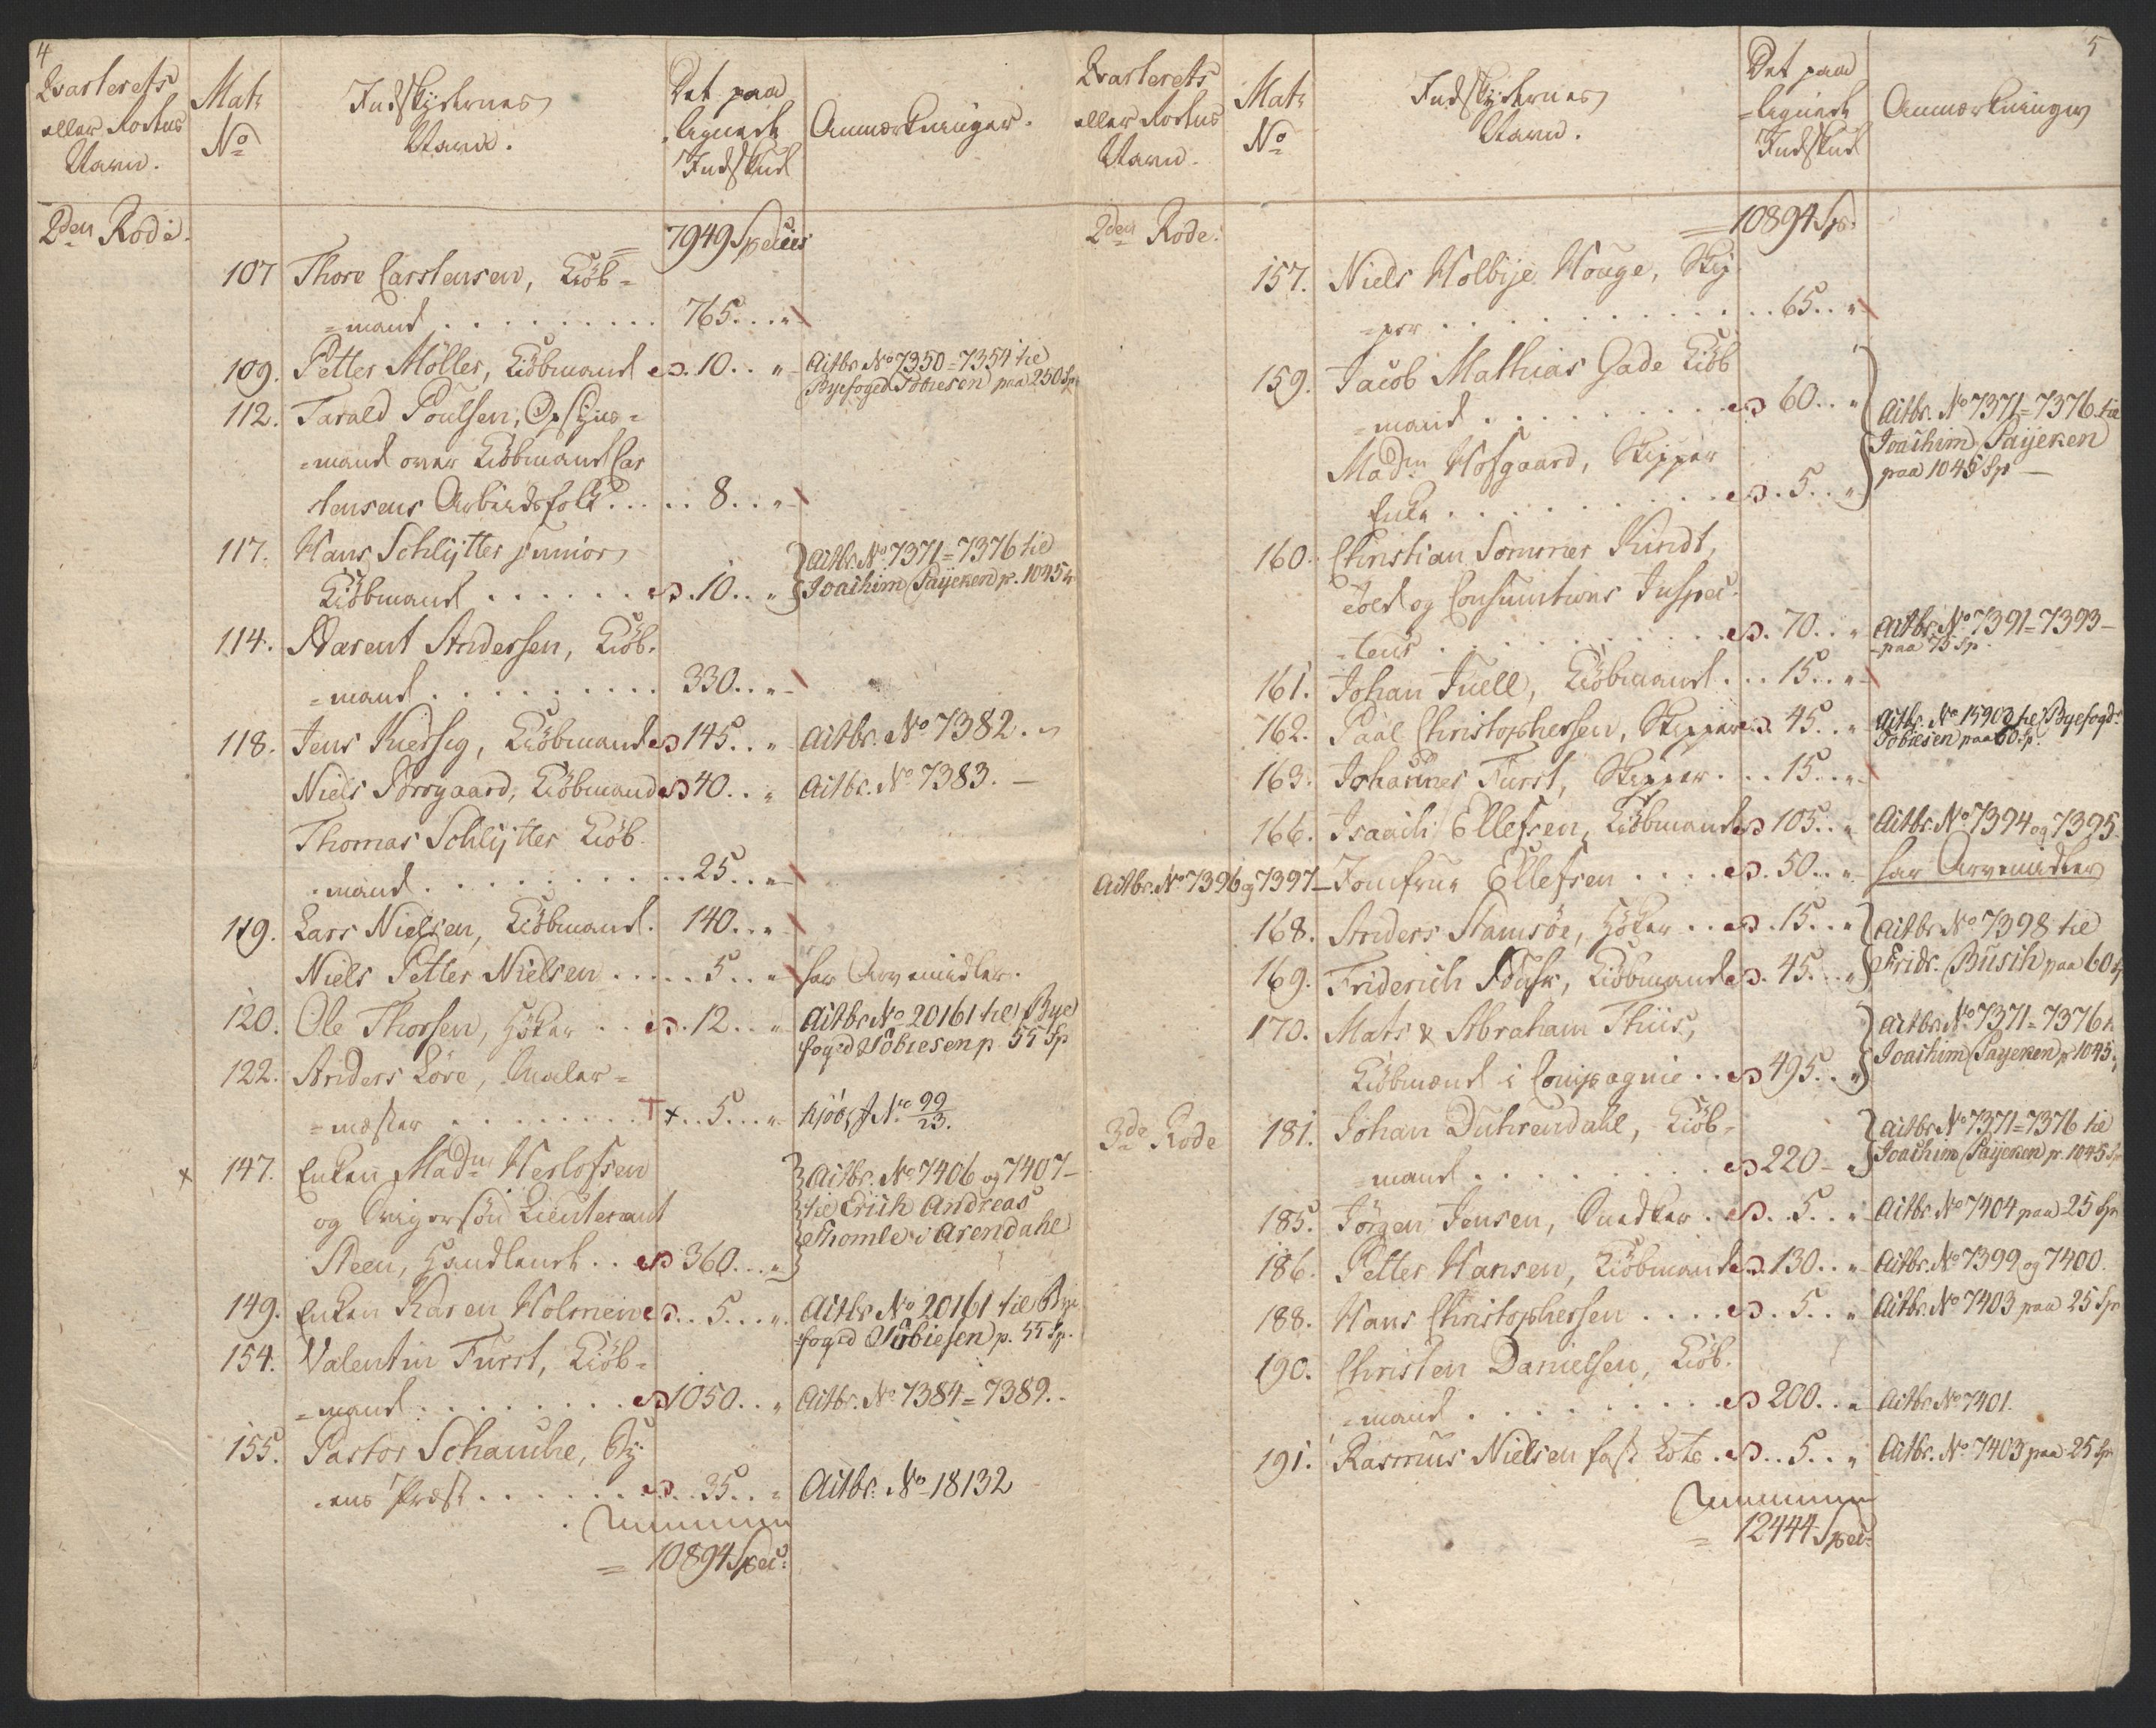 4
Qvarterets
eller Rodens
Navn.
Matr
No
Indskydernes
Navn.
Det paa
lignede
Indskud
Anmærkninger.
2den Rode.
= 7949 Species
107 Thore Carstensen, Kiöb-
=mand . . . . . . . . . 765. . . "
109. Petter Möller, Kiöbmand . 10. . " Actbr. No 7350=7354 til
Byefoged Tobiesen paa 250 Sp
112. Tarald Poulsen, Opsyns-
=mand over Kiöbmand Car
stensens Arbeidsfolk . . . . 8. . "
117. Hans Schlytter junior,
Kiöbmand . . . . . . 10. . " Actbr. No. 7371=7376 til
Joachim Payeken p. 1045
114. Barent Andersen, Kiöb-
=mand . . . . . . . . . 330. . "
118. Jens Juersyg, Kiöbmand 145. . " Actbr. No 7382.
Niels Borgaard, Kiöbmand 40. . " Actbr. No 7383. —
Thomas Schlytter Kiöb
=mand . . . . . . . . . 25. . "
119. Lars Nielsen, Kiöbmand. 140. . "
Niels Petter Nielsen . . . . . 5. . . " har Arvemidler.
120. Ole Thorsen, Höker . . . 12. . " Actbr No 20161 til Bye
foged Tobiesen p. 55 Sp
122. Anders Löve, Maler-
=mester . . . . . . . . † x . . 5. . . " No 99/23.
x 147. Enken Madme Herlofsen
og Svigersön Lieutenant
Steen, Handlende . . 360. . . " Actbr. No 7406 og 7407—
til Erich Andreas
Thomle i Arendahl
149. Enken Karen Holmen . . 5. . . " Actbr No 20161 til Bye
=foged Tobiesen p. 55 Sp.
154. Valentin Furst, Kiöb-
=mand . . . . . . . . 1050. . " Actbr. No 7384=7389. -
155. Pastor Schanche, By-
=ens Præst . . . . . . . . 35. . " Actbr. No 18132
= 10894 Spec:
5
Qvarterets
eller Rodens
Navn.
Matr
No
Indskydernes
Navn.
Det paa
=lignede
Indskud
Anmærkninger
2den Rode.
= 10894 Sp.
157. Niels Holbye Houge, Skip-
=per . . . . . . . . . . . . . 65. . "
159. Jacob Mathias Gade Kiöb
=mand . . . . . . . . . 60. . "
Madm Hofgaard, Skipper
Enke . . . . . . . . . . . 5. . " Actbr. No 7371=7376 til
Joachim Payeken
paa 1045 Sp —
160. Christian Sommer Kindt,
Told og Consumtions Inspec-
=teur . . . . . . . . . . 70. . " Actbr. No. 7391=7393—
-paa 75 Sp.
161. Johan Juell, Kiöbmand . . . 15. . "
162. Paal Christophersen, Skipper . 45. . " Actbr. No 15903 til Byefogd
Tobiesen paa 60 Sp.
163. Johannes Furst, Skipper . . . 15. . "
166. Isaach Ellefsen, Kiöbmand 105. . " Actbr. No. 7394 og 7395.
Actbr. No 7396 og 7397— Jomfrue Ellefsen . . . . . 50. . " har Arvemidler
168. Anders Stamsöe, Höker . . . 15. . "
169. Friderich Busk, Kiöbmand . 45. . . " Actbr No 7398 til
Fridr. Busch paa 60
170. Mats & Abraham Thiis,
Kiöbmænd i Compagnie . . 495. . " Actbr No. 7371=7376
Joachim Payeken p 1045
3de Rode
181. Johan Duhrendahl, Kiöb-
=mand . . . . . . . . 220 — " Actbr No 7371=7376 til
Joachim Payeken p. 1045
185. Jörgen Jensen, Snedker . . . 5. . " Actbr. No 7404 paa 25 Sp
186. Petter Hansen, Kiöbmand . 130. . " Actbr. No 7399 og 7400.
188. Hans Christophersen . . . . . 5. . " Actbr. No 7403 paa 25 Sp
190. Christen Danielsen, Kiöb-
=mand . . . . . . . . . . 200. . " Actbr No 7401.
191. Rasmus Nielsen fast Lots . . . 5. . " Actbr. No. 7403 paa 25 Sp
= 12444 Spec: